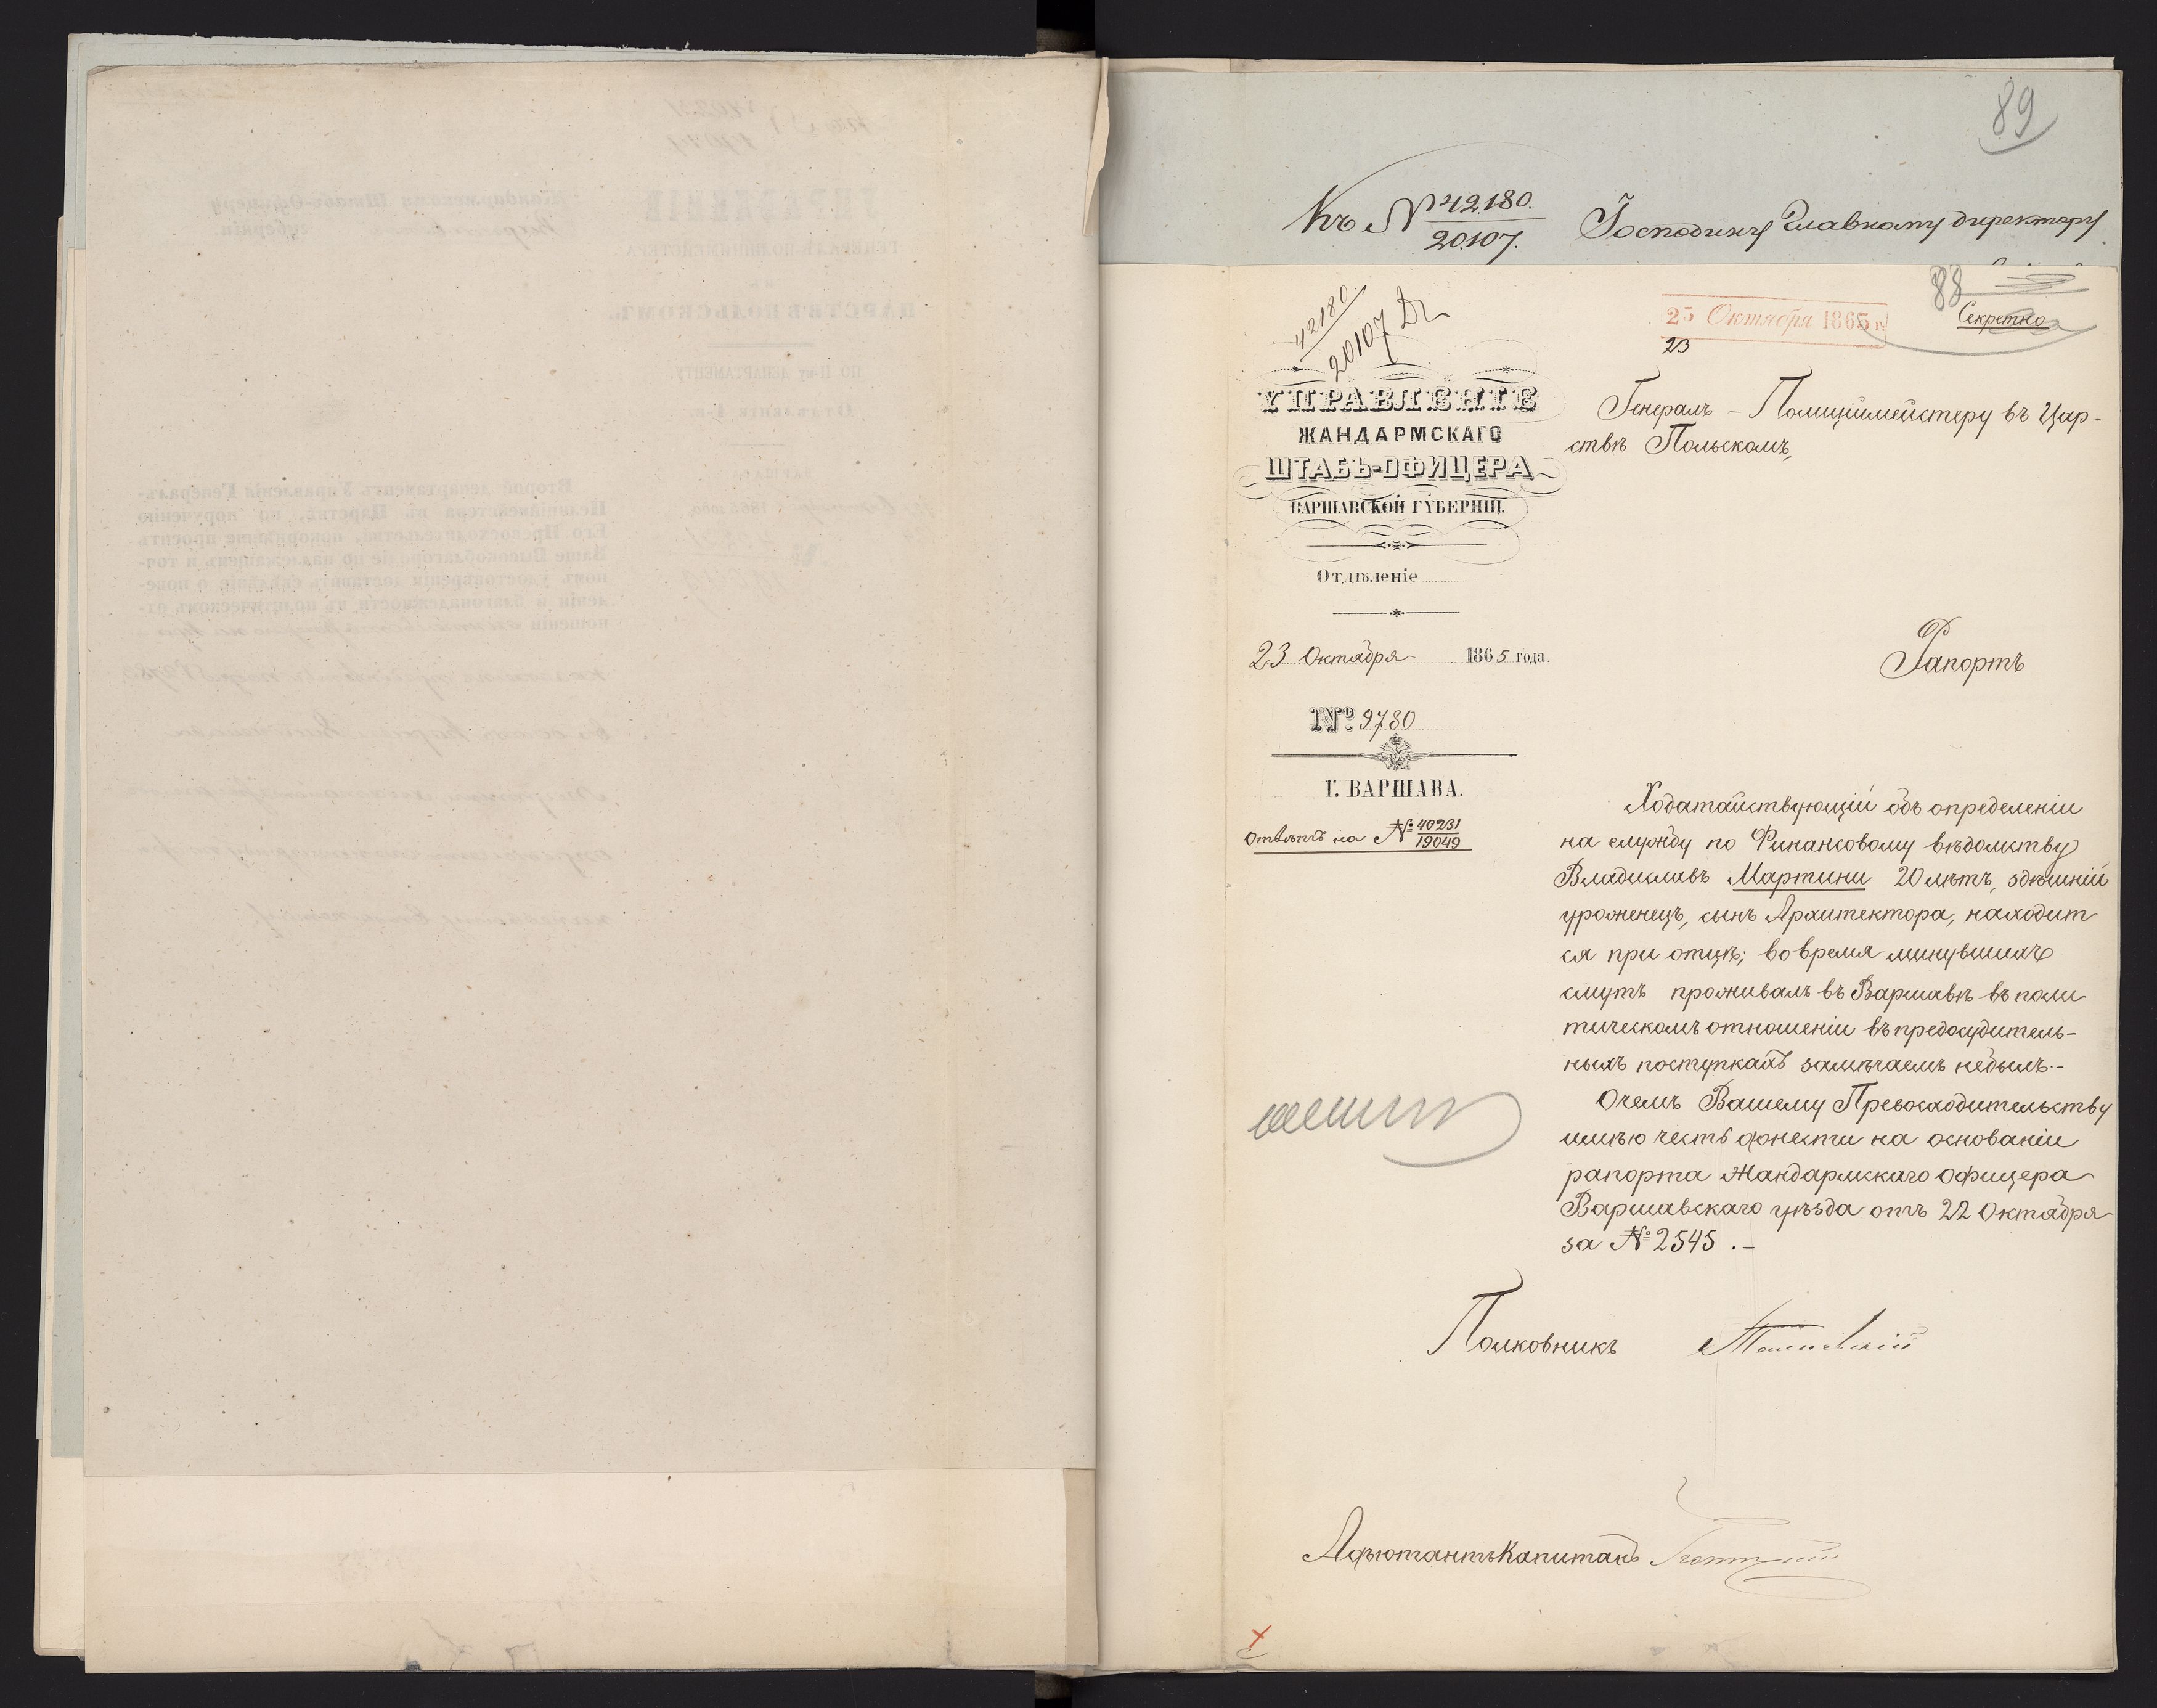 89
Къ № 42180.
20107.
Господину Главному директору
88
42180
20107
25 Октября 1865 г.
23
Секретно
УПРАВЛЕНІЕ
ЖАНДАРМСКАГО
ШТАБЪ-ОФИЦЕРА
ВАРШАВСКОЙ ГУБЕРНІИ.
Отдѣленіе
23 Октября 1865 года.
№ 9780
Г. ВАРШАВА.
Отвѣтъ на № 40231
19049
Генералъ-Полиціймейстеру въ Цар-
ствѣ Польскомъ,
Рапортъ
Ходатайствующій объ определеніи
на службу по Финансовому вѣдомству
Владиславъ Мартини 20 лѣтъ, здѣшній
уроженецъ, сынъ Архитектора, находит
ся при отцѣ; во время минувшихъ
смутъ проживалъ въ Варшавѣ въ поли
тическомъ отношеніи въ предосудитель-
ныхъ поступкахъ замѣчаемъ небылъ.-
О чемъ Вашему Превосходительству
имѣю честь донести на основаніи
рапорта Жандармскаго Офицера
Варшавскаго уѣзда отъ 22 Октября
за № 2545.-
Полковникъ
Адъютантъ Капитанъ